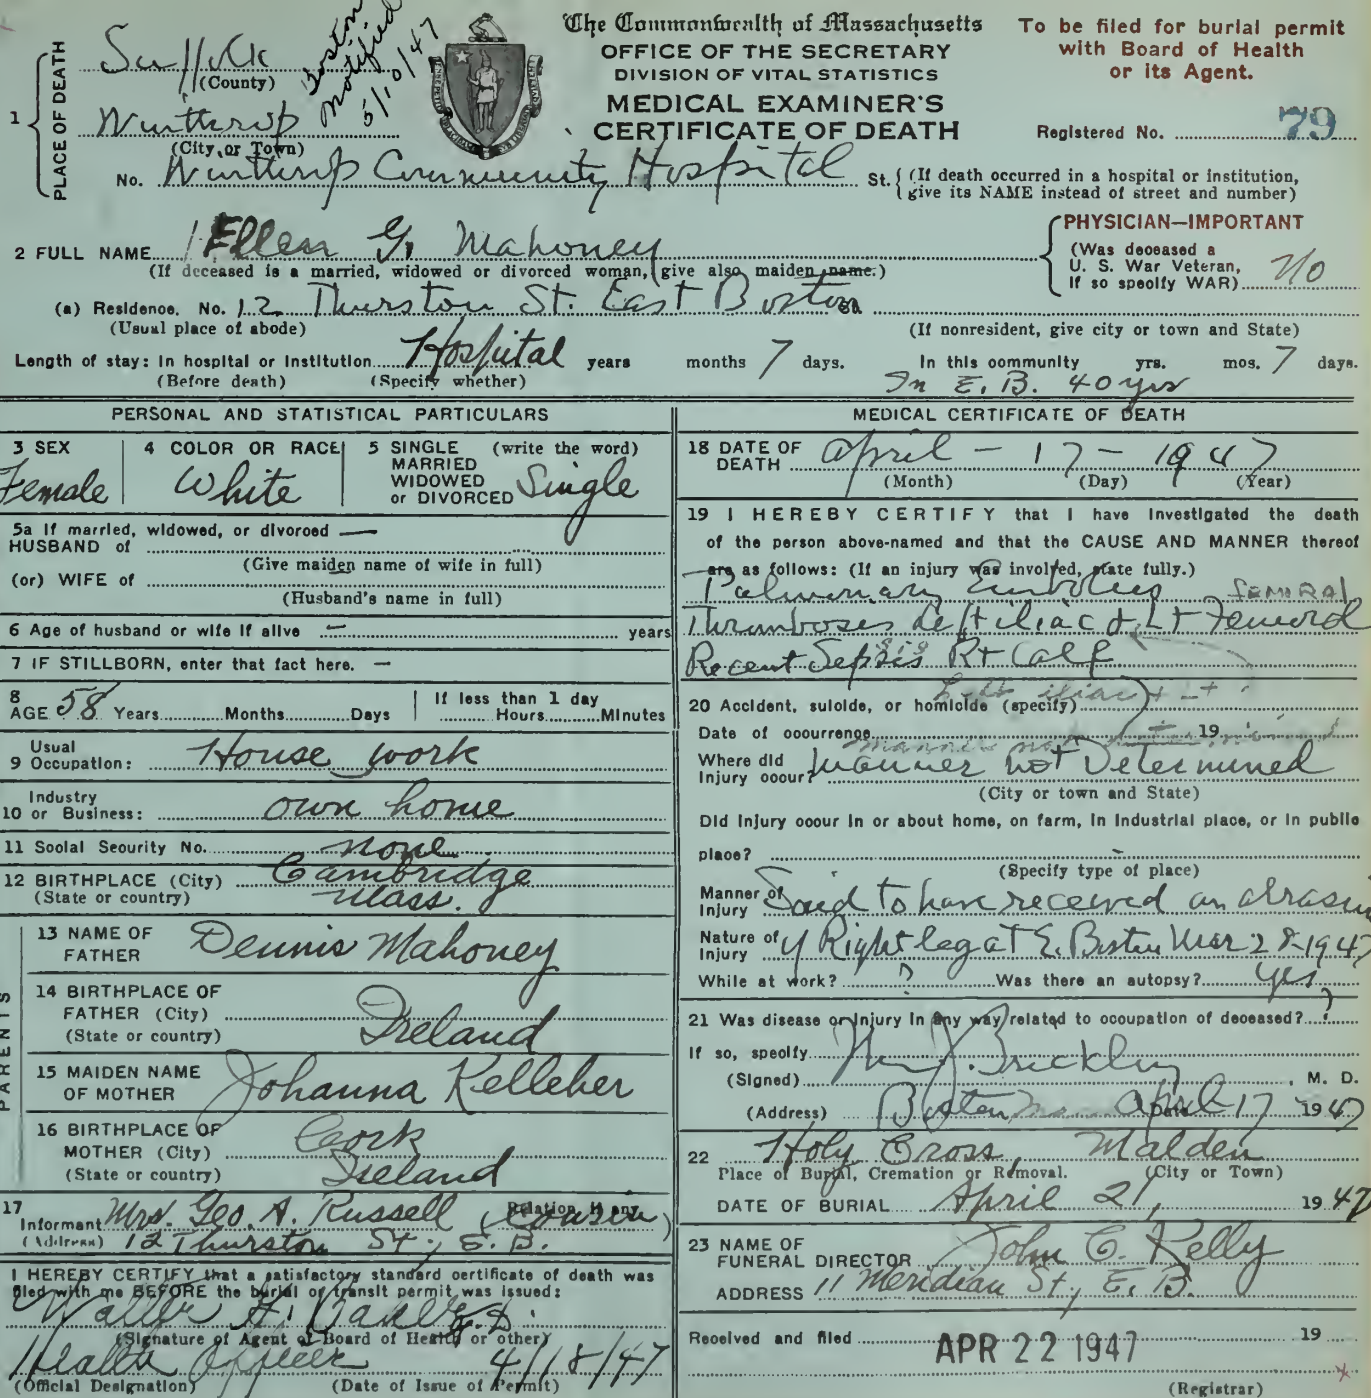 The Commonwealth of Massachusetts
OFFICE OF THE SECRETARY
DIVISION OF VITAL STATISTICS
MEDICAL EXAMINER'S
CERTIFICATE OF DEATH
To be filed for burial permit
with Board of Health
or its Agent.
Registered No. 79
Boston
Notified
5/10/47
1 PLACE OF DEATH
Suffolk
(County)
Winthrop
(City or Town)
No. Winthrop Community Hospital St. (If death occurred in a hospital or institution,
give its NAME instead of street and number)
2 FULL NAME Ellen G. Mahoney
(If deceased is a married, widowed or divorced woman, give also maiden name.)
PHYSICIAN—IMPORTANT
(Was deceased a
U. S. War Veteran,
If so specify WAR) No
(a) Residence. No. 12 Thurston St. East Boston
(Usual place of abode)
(If nonresident, give city or town and State)
Length of stay: In hospital or Institution Hospital years months 7 days. In this community yrs. mos. 7 days.
(Before death) (Specify whether)
In E. B. 40 yrs
PERSONAL AND STATISTICAL PARTICULARS
3 SEX
Female
4 COLOR OR RACE
White
5 SINGLE (write the word)
MARRIED
WIDOWED
or DIVORCED Single
5a If married, widowed, or divorced —
HUSBAND of
(Give maiden name of wife in full)
(or) WIFE of
(Husband's name in full)
6 Age of husband or wife if alive — years
7 IF STILLBORN, enter that fact here. —
8 AGE 58 Years Months Days
If less than 1 day
Hours Minutes
9 Usual Occupation: House work
10 Industry or Business: own home
11 Social Security No. none
12 BIRTHPLACE (City) Cambridge
(State or country) Mass.
PARENTS
13 NAME OF
FATHER Dennis Mahoney
14 BIRTHPLACE OF
FATHER (City)
(State or country) Ireland
15 MAIDEN NAME
OF MOTHER Johanna Kelleher
16 BIRTHPLACE OF
MOTHER (City) Cork
(State or country) Ireland
17 Informant Mrs. Geo. A. Russell Relation, if any (Cousin)
(Address) 12 Thurston St., E. B.
I HEREBY CERTIFY that a satisfactory standard certificate of death was
filed with me BEFORE the burial or transit permit was issued:
Walter A.
(Signature of Agent of Board of Health or other)
Health Officer 4/18/47
(Official Designation) (Date of Issue of Permit)
MEDICAL CERTIFICATE OF DEATH
18 DATE OF
DEATH April - 17 - 1947
(Month) (Day) (Year)
19 I HEREBY CERTIFY that I have investigated the death
of the person above-named and that the CAUSE AND MANNER thereof
are as follows: (If an injury was involved, state fully.)
Pulmonary Embolus
Thromboses left iliac & Lt Femoral
Recent Sepsis Rt Calf
left iliac + Lt ?
20 Accident, suicide, or homicide (specify)
Date of occurrence 19
manner not determined
Where did
Injury occur? Manner not Determined
(City or town and State)
Did Injury occur in or about home, on farm, in industrial place, or in public
place?
(Specify type of place)
Manner of
Injury Said to have received an abrasion
Nature of
Injury of Right leg at E. Boston Mar 28-1947
While at work? ? Was there an autopsy? yes
21 Was disease or injury in any way related to occupation of deceased? ?
If so, specify
(Signed) Wm J. Brickley, M. D.
(Address) Boston Date April 17 1947
22 Holy Cross, Malden
Place of Burial, Cremation or Removal. (City or Town)
DATE OF BURIAL April 21, 1947
23 NAME OF
FUNERAL DIRECTOR John C. Kelly
ADDRESS 11 Meridian St., E. B.
Received and filed APR 22 1947 19
(Registrar)